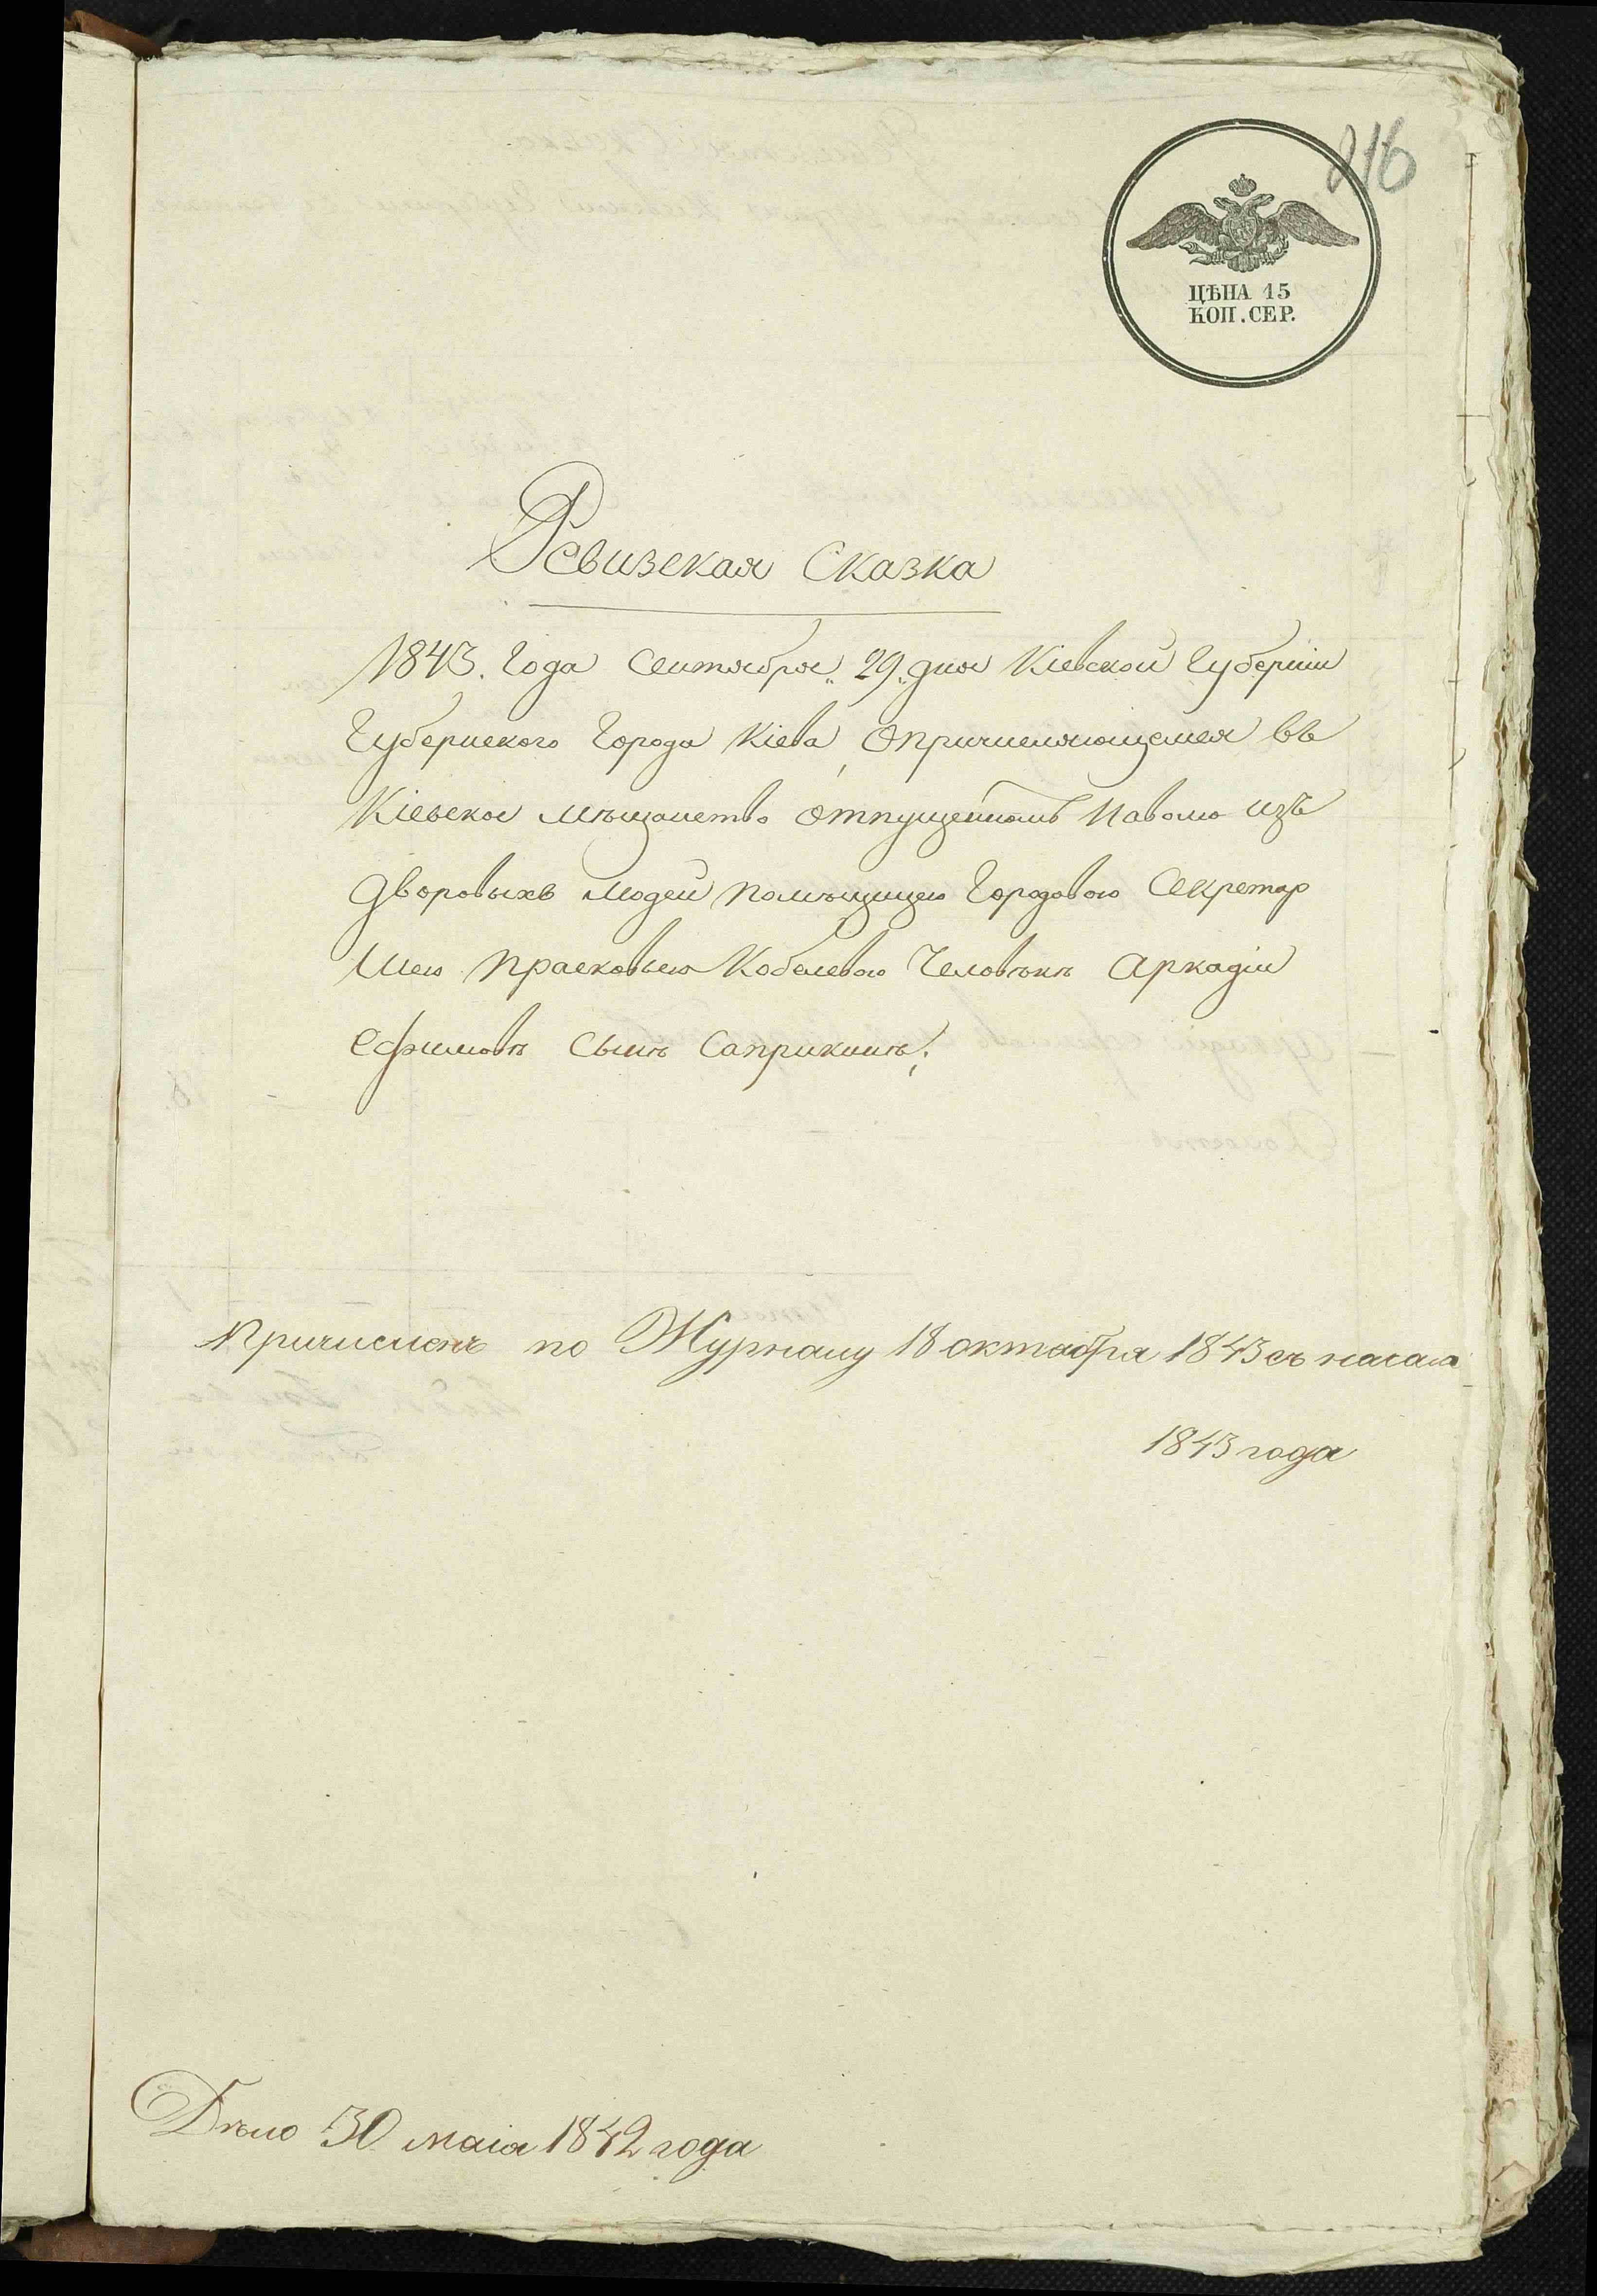 216
ЦѢНА 15
КОП. СЕР.
Ревизская Сказка
1843. Года Сентября „29„ дня Кіевской Губерніи
Губернского Города Кіева, Опричисляющемся въ
Кіевское мѣщанство Отпущенномъ Наволю изъ
Дворовыхъ людей помѣщицею Городовою Секретар
шею Прасковьею Кобелевою Человѣкѣ Аркадіи
Ефимовѣ Сынѣ Саприкинѣ;
Причисленъ по Журналу 18 октября 1843 съ начала
1843 года
Дѣло 30 маія 1842 года